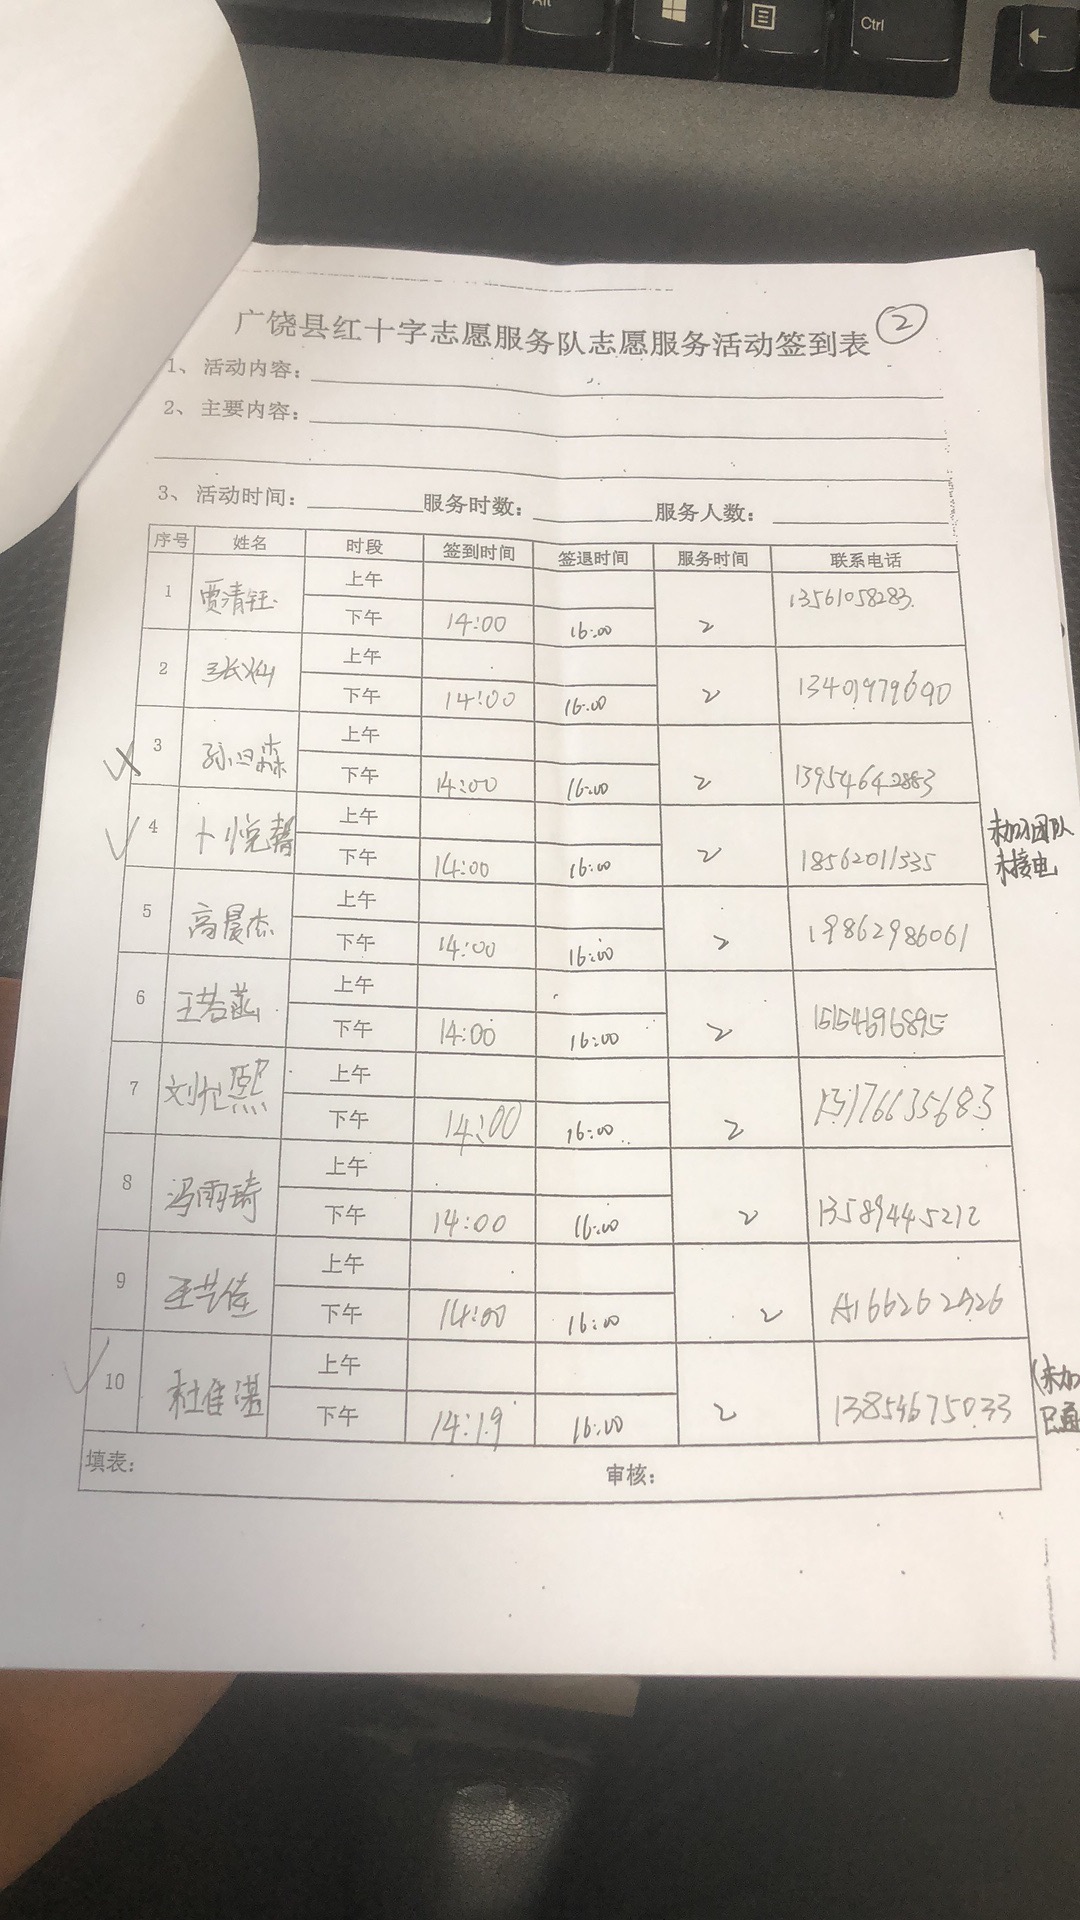 Alt
Ctrl
广饶县红十字志愿服务队志愿服务活动签到表 ②
1、活动内容：
2、主要内容：
3、活动时间： 服务时数： 服务人数：
序号 姓名 时段 签到时间 签退时间 服务时间 联系电话
1 贾清钰 上午
下午 14:00 16:00 2 13561058283
2 张灿 上午
下午 14:00 16:00 2 13401979690
3 上午
下午 14:00 16:00 2 13954642883
4 卜悦馨 上午
下午 14:00 16:00 2 18562011335
未加团队
未接电
5 高晨杰 上午
下午 14:00 16:00 2 19862986061
6 王若菡 上午
下午 14:00 16:00 2 15154696895
7 上午
下午 14:00 16:00 2
8 冯雨琦 上午
下午 14:00 16:00 2 13589445212
9 王艺佳 上午
下午 14:00 16:00 2
10 杜佳湛 上午
下午 14:19 16:00 2 13854675033
(未加
已通
填表： 审核：